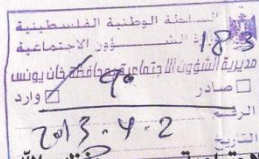 السلطة الوطنية الفلسطينية
الشؤون الاجتماعية
183
مديرية الشؤون الاجتماعية بمحافظة خان يونس
صادر وارد
90
الرقم
2013.4.2
التاريخ